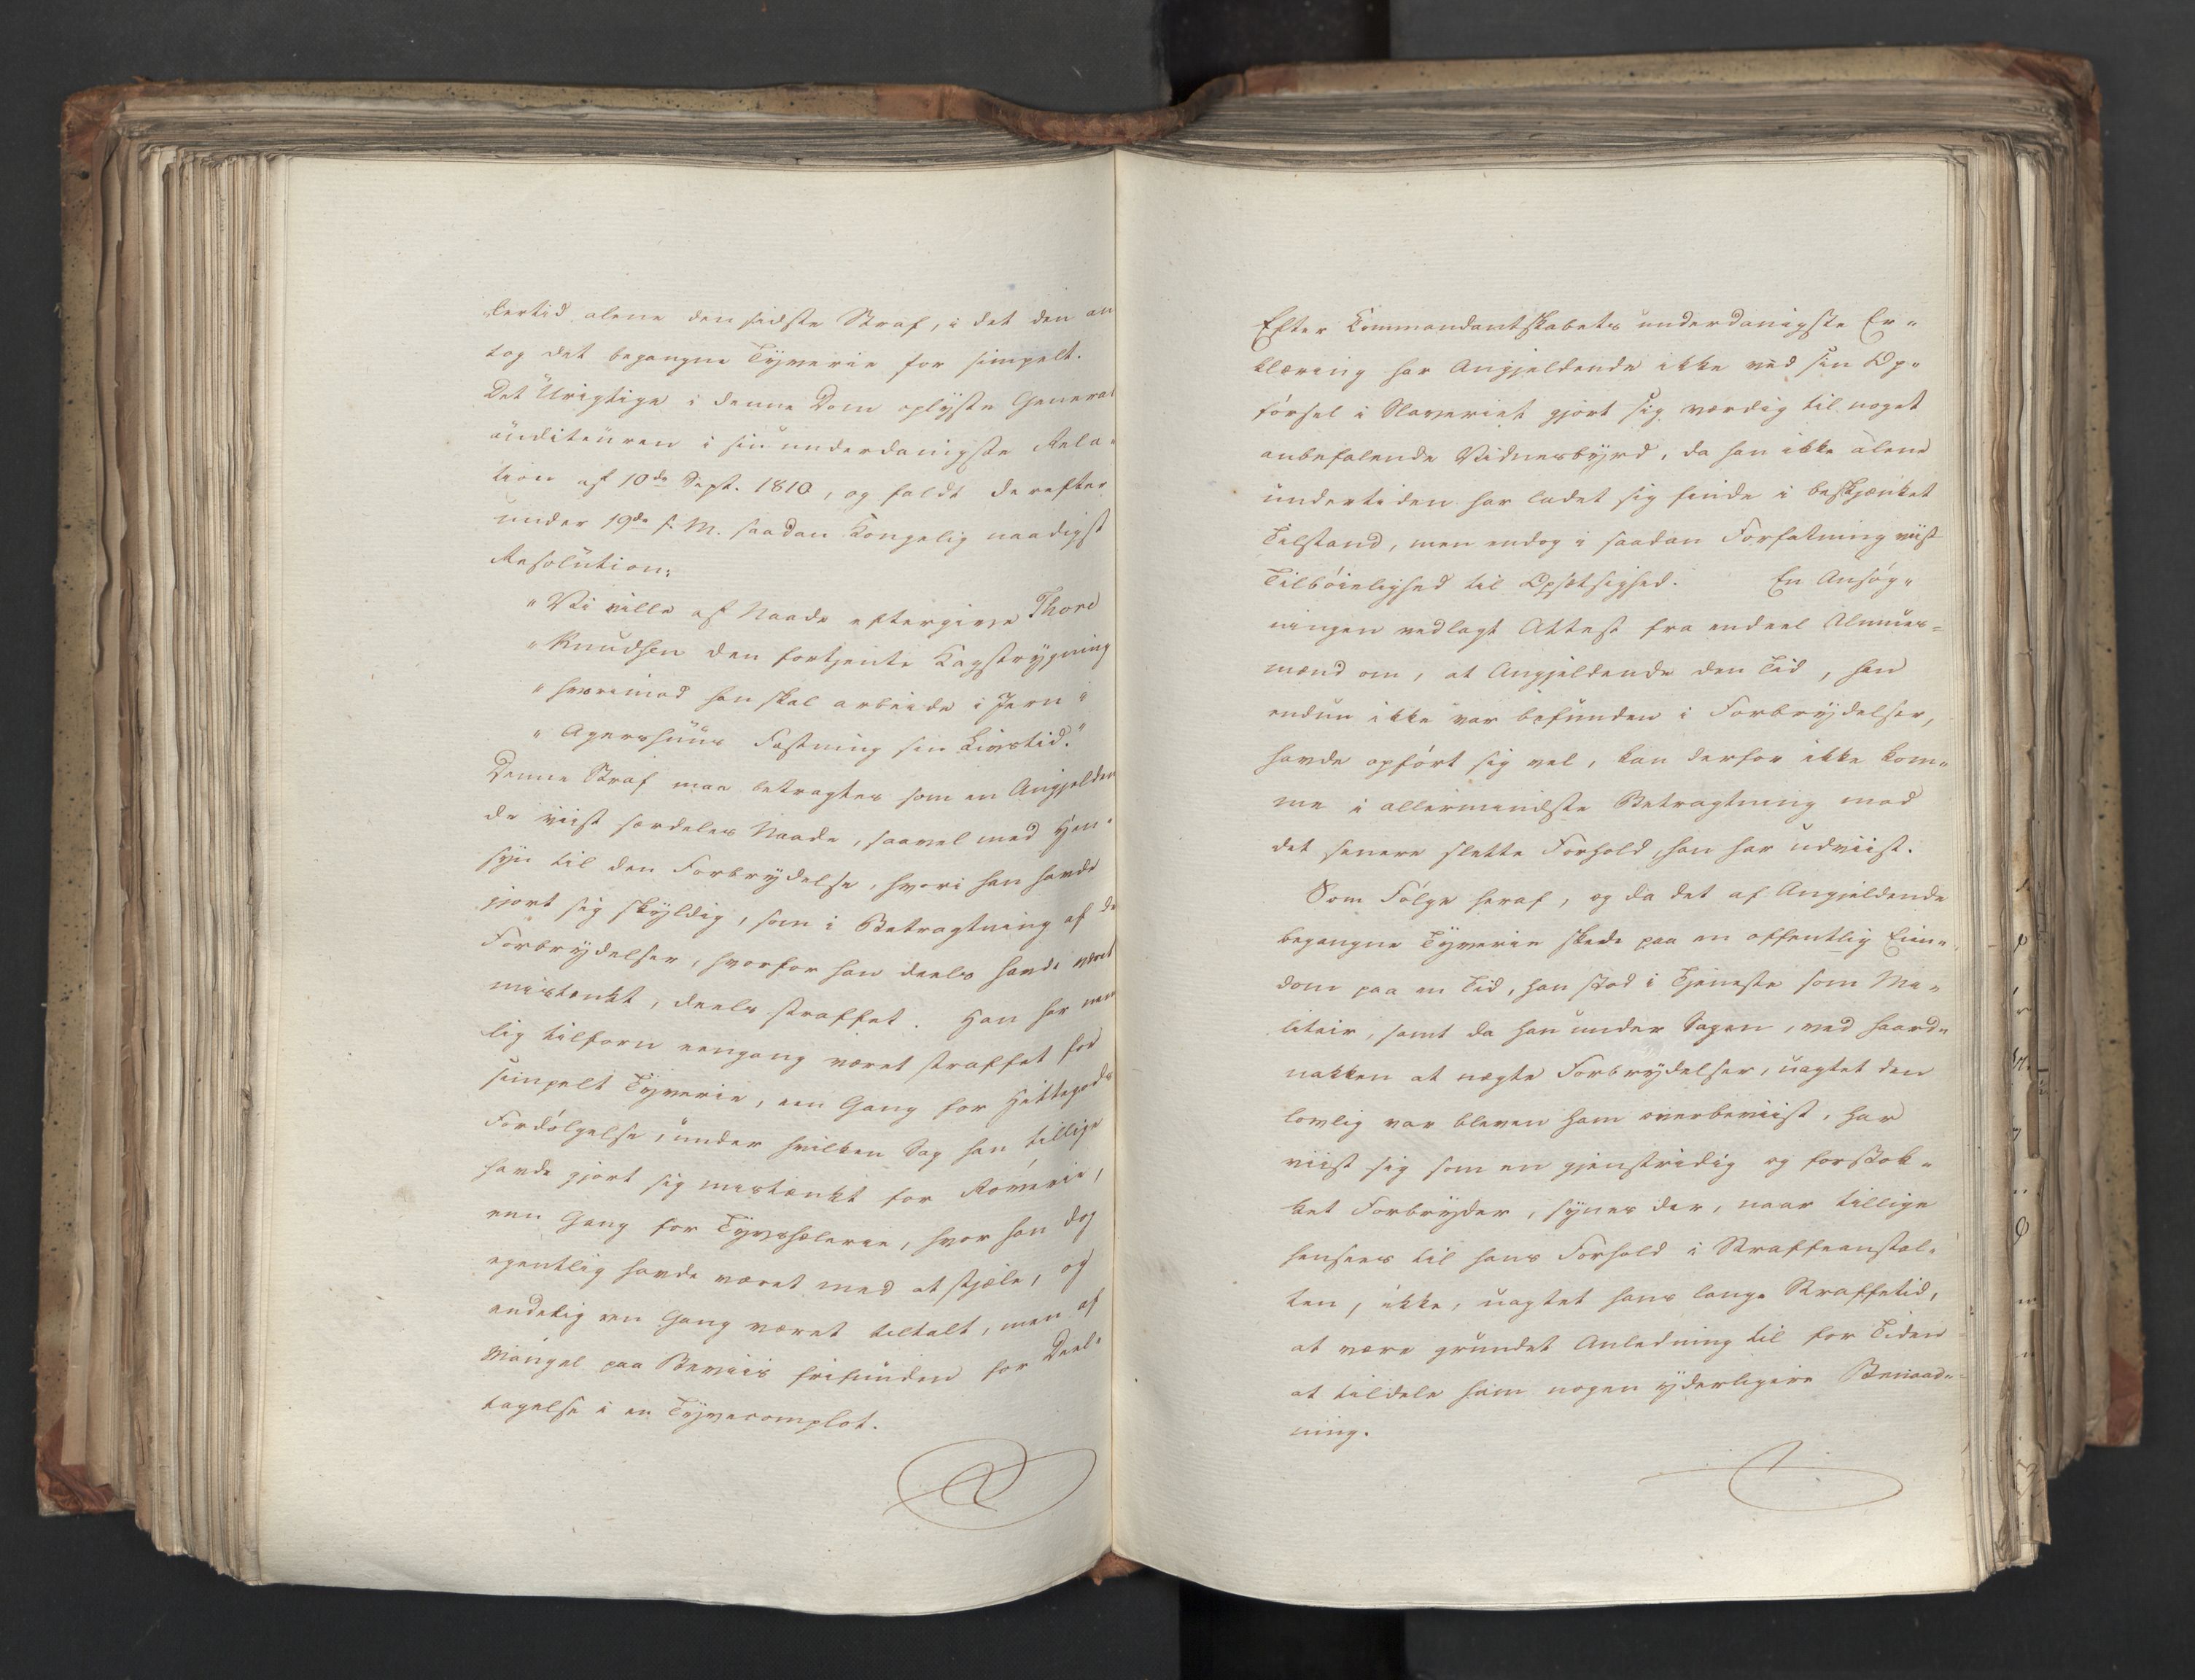 lertid alene den sidste Straf, i det den an
tog det begangne Tyverie for simpelt.
Det Urigtige i denne Dom oplyste General
auditeuren i sin underdanigste Rela-
tion af 10de Sept. 1810, og faldt derefter
under 19de s. M. saadan Kongelig naadigst
Resolution:
"Vi ville af Naade eftergive Thore
"Knudsen den fortjente Kagstrygning
"hvorimod han skal arbeide i Jern i
"Agershuus Fæstning sin Livstid."
Denne Straf maa betragtes som en Angjelden
de viist særdeles Naade, saavel med Hen-
syn til den Forbrydelse, hvori han havde
gjort sig skyldig, som i Betragtning af de
Forbrydelser, hvorfor han deels havde været
mistænkt, deels straffet. Han har nem
lig tilforn eengang været straffet for
simpelt Tyverie, een Gang for Hittegods
Fordølgelse, under hvilken Sag han tillige
havde gjort sig mistænkt for Røverie,
een Gang for Tyvshælerie, hvor han dog
egentlig havde været med at stjæle, og
endelig een Gang været tiltalt, men af
Mangel paa Beviis frifunden for Deel-
tagelse i en Tyvecomplot.
Efter Kommandantskabets underdanigste Er-
klæring har Angjeldende ikke ved sin Op-
førsel i Slaveriet gjort sig værdig til noget
anbefalende Vidnesbyrd, da han ikke alene
undertiden har ladet sig finde i beskjænket
Tilstand, men endog i saadan Forfatning viist
Tilbøielighed til Opsætsighed. En Ansøg-
ningen vedlagt Attest fra endeel Almues-
mænd om, at Angjeldende den Tid, han
endnu ikke var befunden i Forbrydelser,
havde opført sig vel, kan derfor ikke kom-
me i allermindste Betragtning mod
det senere slette Forhold, han har udviist.
Som Følge heraf, og da det af Angjeldende
begangne Tyverie skede paa en offentlig Eien-
dom paa en Tid, han stod i Tjeneste som Mi-
litair, samt da han under Sagen, ved haard-
nakken at nægte Forbrydelser, uagtet den
lovlig var bleven ham overbeviist, har
viist sig som en gjenstridig og forstok-
ket Forbryder, synes der, naar tillige
hensees til hans Forhold i Straffeanstal-
ten, ikke, uagtet hans lange Straffetid,
at være grundet Anledning til for Tiden
at tildele ham nogen yderligere Benaad-
ning.